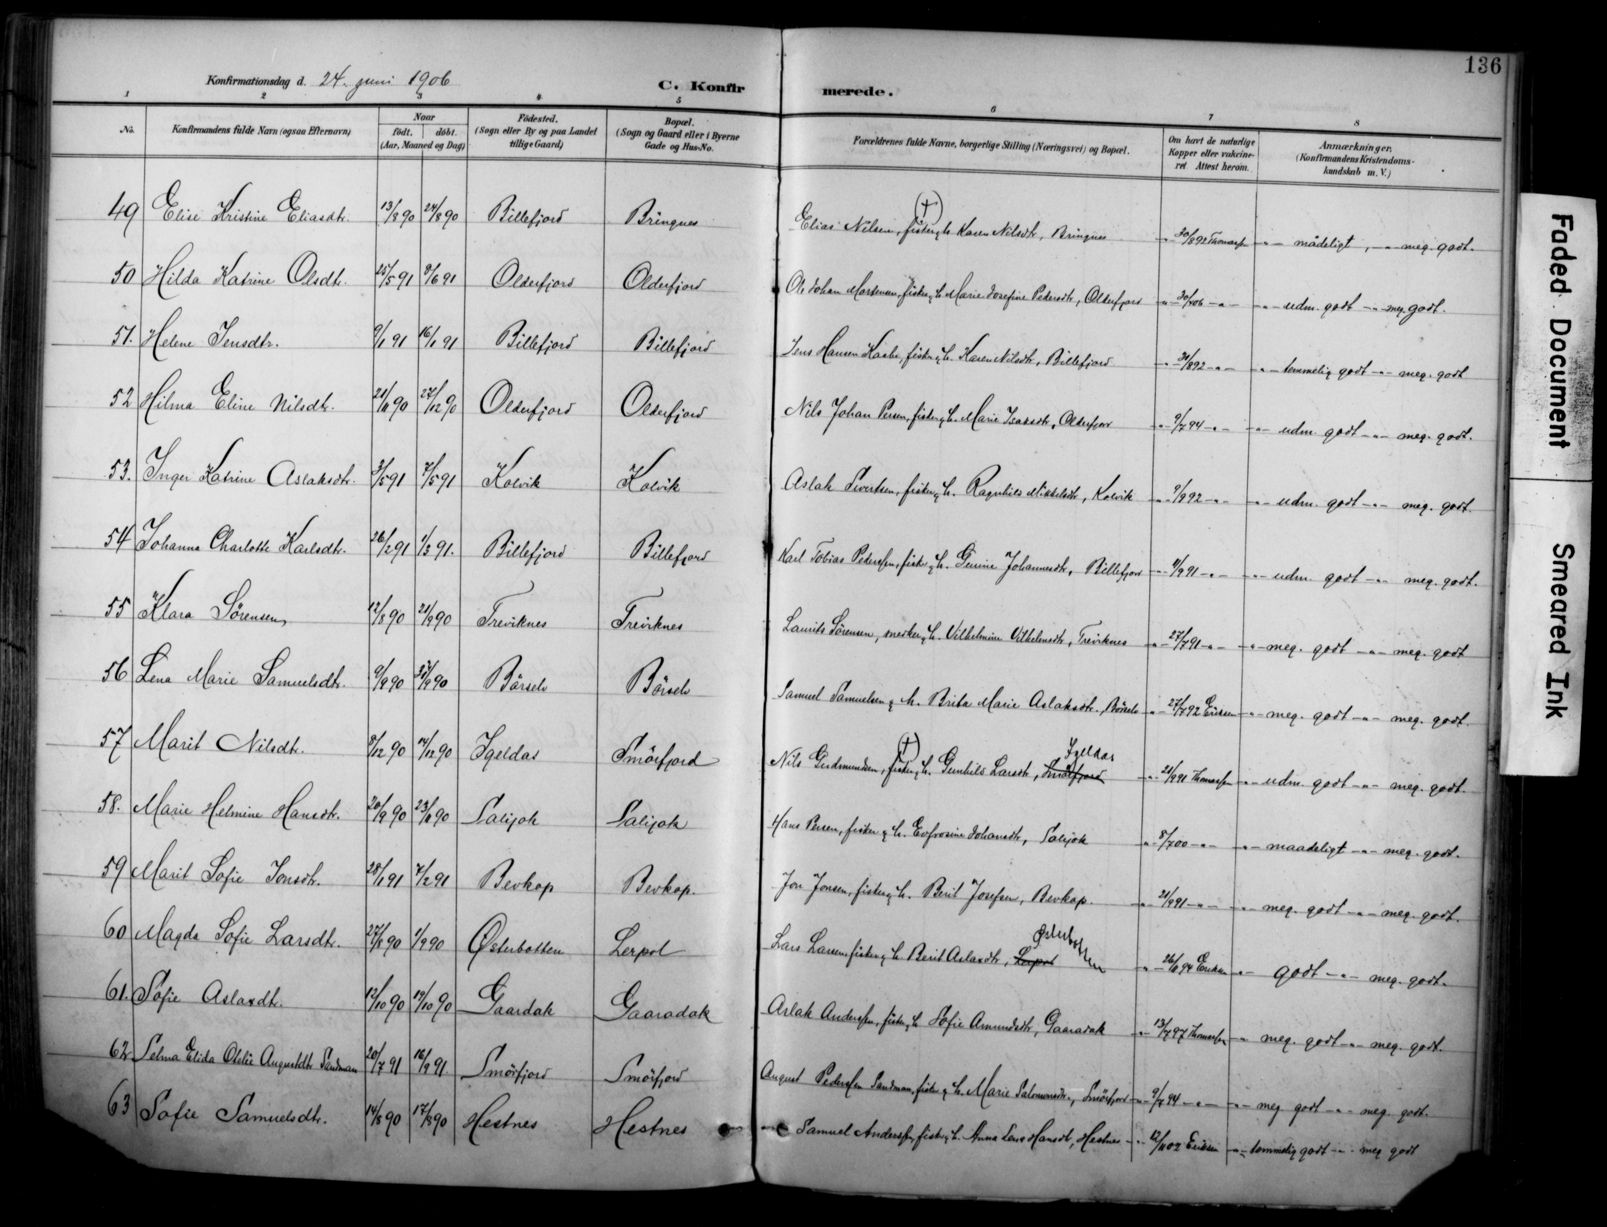 136
Konfirmationsdag d. 24. juni 1906
C. Konfirmerede.
1 2 3 4 5 6 7 8
No. Konfirmandens fulde Navn (ogsaa Efternavn) Naar født. døbt. (Aar, Maaned og Dag) Fødested. (Sogn eller By og paa Landet tillige Gaard) Bopæl. (Sogn og Gaard eller i Byerne Gade og Hus-No. Forældrenes fulde Navne, borgerlige Stilling (Næringsvei) og Bopæl. Om havt de naturlige Kopper eller vaccineret. Attest herom. Anmærkninger. (Konfirmandens Kristendomskundskab m. V.)
49 Elise Kristine Eliasdtr. 13/8 90 24/8 90 Billefjord Bringnes Elias Nilsen, (†) fisker, h. Karen Nilsdtr, Bringnes -"- 30/8 92 Thomassen -"- mådeligt, -"- meg. godt.
50 Hilda Katrine Olsdtr. 25/5 91 8/6 91 Olderfjord Olderfjord Ole Johan Mortensen, fisker, h. Marie Josefine Pedersdtr, Olderfjord -"- -"- -"- udm. godt -"- meg. godt.
51. Helene Jensdtr. 9/1 91 16/1 91 Billefjord Billefjord Jens Hansen fisker, h. Karen Nilsdtr, Billefjord -"- -"- -"- temmelig godt -"- meg. godt
52 Hilma Eline Nilsdtr. 27/12 90 Olderfjord Olderfjord Nils Johan Persen, fisker, h. Marie Isaksdtr, Olderfjord -"- 9/7 94 -"- -"- udm. godt -"- meg. godt.
53. Inger Katrine Aslaksdtr. 3/5 91 7/5 91 Kolvik Kolvik Aslak Sivertsen, fisker, h. Ragnhild Mikkelsdtr, Kolvik -"- 9/9 92 -"- -"- udm. godt -"- meg. godt
54 Johanna Charlotte Karlsdtr. 26/2 91 1/3 91. Billefjord Billefjord Karl Tobias Pedersen, fisker, h. Gurine Johannesdtr, Billefjord -"- -"- -"- udm. godt -"- meg. godt.
55 Klara Sørensen 12/8 90 21/9 90 Treviknes Treviknes Laurits Sørensen, h. Vilhelmine Vilhelmsdtr, Treviknes -"- 27/7 91 -"- -"- meg. godt -"- meg. godt
56 Lena Marie Samuelsdtr. 9/9 90 Børselv Børselv Samuel Samuelsen, h. Brita Marie Aslaksdtr. Børselv -"- 27/7 92 Eriksen -"- meg. godt -"- meg. godt.
57 Marit Nilsdtr. 8/12 90 14/12 90 Igeldas Smörfjord Nils Gudmundsen, (†) fisker, h. Gunhild Larsdtr, Smörfjord Igeldas -"- 21/9 91 Thomassen -"- udm. godt -"- meg. godt.
58. Marie Helmine Hansdtr. 20/9 90 Salijok Salijok Hans Persen, fisker, h. Evfrosine Johansdtr, Salijok -"- 8/7 00 -"- -"- maadeligt -"- meg. godt.
59 Marit Sofie Jonsdtr. 28/1 91 7/2 91 Bevkop Bevkop. Jon Jonsen, fisker, h. Berit Josefsen, Bevkop. -"- 21/9 91 -"- -"- meg. godt -"- meg. godt.
60 Magda Sofie Larsdtr. 27/8 90 1/9 90 Østerbotten Lerpol Lars Larsen fisker, h Berit Aslaxdtr, Lerpol Østerbotten -"- 26/6 94 Eriksen -"- godt -"- meg. godt.
61. Sofie Aslaxdtr. 12/10 90 19/10 90 Gaardak Gaaradak Aslak Andersen, fisker, h Sofie Amundsdtr, Gaaradak -"- 13/7 97 Thomassen -"- meg. godt -"- meg. godt.
62 Selma Elida Otelie Augustdtr Sandman 20/7 91 16/9 91 Smörfjord Smörfjord August Pedersen Sandman, fisker, h. Marie Salomonsdtr, Smörfjord -"- 9/7 94 -"- -"- meg godt -"- meg. godt.
63 Sofie Samuelsdtr. 14/8 90 17/8 90 Hestnes Hestnes Samuel Andersen, fisker, h. Anna Lena Hansdtr, Hestnes -"- Eriksen -"- temmelig godt -"- meg godt
Faded Document
Smeared Ink